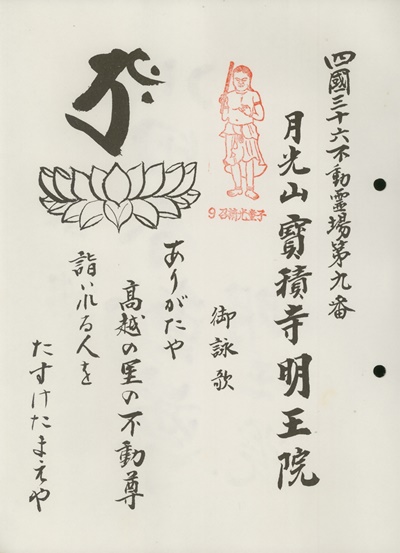 四國三十六不動霊場第九番
月光山寶積寺明王院
9召請光童子
御詠歌
ありがたや
高越の里の不動尊
詣いれる人を
たすけたまえや